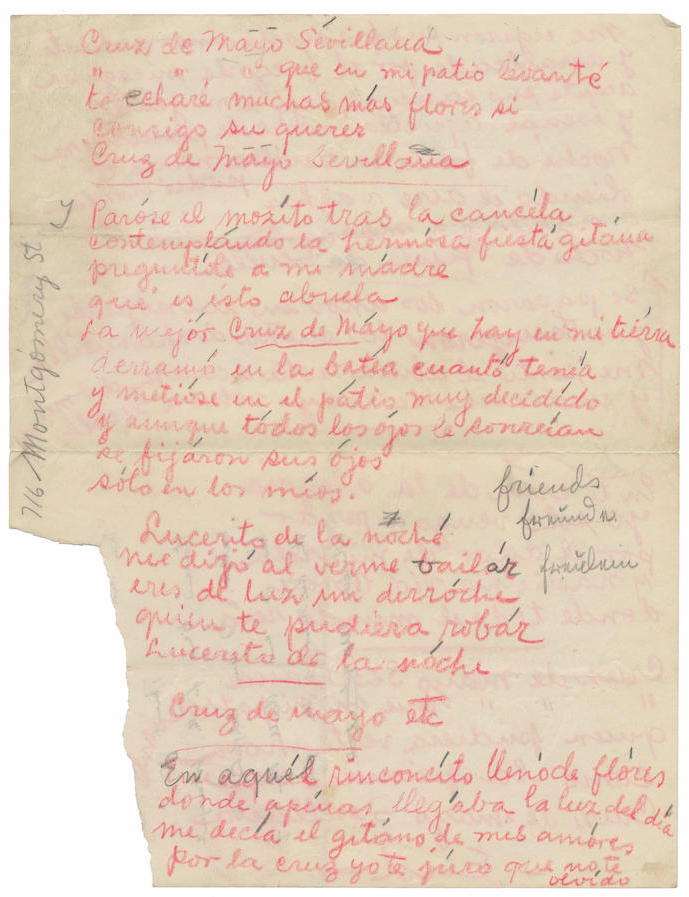 Cruz de Mayo Sévillaná
" " que en mi patio lévanté
te echaré muchas más flores si
consigo su querer
Cruz de Mayo Sevillana
y Paróse el mozito tras la cancéla
contemplándo la hermósa fiésta gitána
preguntóle a mi mádre
qué es ésto abuela
La mejór Cruz de Máyo que háy en mi tiérra
derramó en la batéa cuantó tenía
y metióse en el pátio muy decidído
y aunque tódos los ójos le conreían
se fijáron sus ójos
sólo en los míos.
716 Montgómery St
friends
freúnde
freúlein
Lucerito de la nóché
me dijó al verme bailár
eres de luz un derróche
quien te pudiera robár
Lucerito de la nóche
Cruz de mayo etc
En aquél rinconcíto lléno de flóres
donde apénas llegába la luz del día
me decía el gitáno de mis amóres
por la cruz yo te júro que no te
olvído